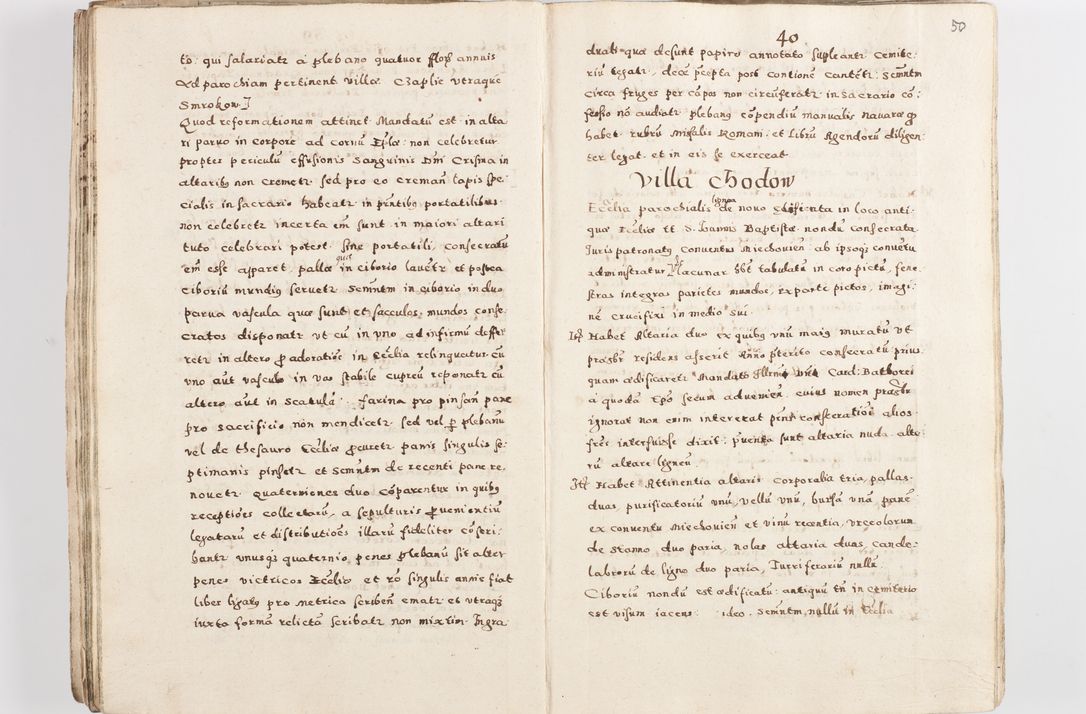 to: qui salariatr a plebano quatuor fflos annuis
Ad parochiam pertinent villæ Czaplie utraque
Smrokow
Quod reformationem attinet Mandatū est in alta
ri paruo in corpore ad cornū Eplæ non celebretur
propter periculū effusionis Sanguinis Dni Crisma in
altaribus non cremetr sed pro eo cremandi lapis spe
cialis in sacrario habeatr in portatilibus
non celebretr incerta em sunt in maiori altari
tuto celebrari potest sine portatili, consecratū
em esse apparet, pallæ quæ in ciborio lauetr et postea
ciboriū mundius seruetr Semntm in ciborio in duo
parua vascula quæ sunt et sacculos mundos conse
cratos disponatr ut cū in uno ad infirmū deffer
retr in altero p adoratioe in Ecclia relinquatur cū
uno aūt vasculo in vas stabile cupreū reponatr cū
altero aūt in scatula. farina pro pinsan pane
pro sacrificio non mendicetr sed vel p plebanū
vel de thesauro Eccliæ procuretr panis singulis se
ptimanis pinsetr et Semntm de recenti pane re
nouetr quaterniones duo comparentur in quibus
receptioes collectarū, a sepulturis prouenientiū
legatarū et distributioes illarū fideliter conscri
bantr unusqs quaternio penes plebanū sit alter
penes vietricos Eccliæ et ro singulis annis fiat
liber ligatus pro metrica scriben ematr et utraqs
iuxta formā relictā scribatr non mixtim. Ingra
40
50
duali quæ desunt papiro annotato supleantr cemite
riū tegatr, decē precepta post contionē cantētr. Semntm
circa fruges per cāpos non circūferatr in sacrario cō
fessio nō audiatr plebanus cōpendiū manualis Nauaræ q
habet rubrū Missalis Romani et librū Agendorū diligen
ter legat et in eis se exerceat
Villa Chodow
Ecclia parochialis lignea de nouo in loco anti
quæ Eccliæ tt S. Ioannis Baptistæ nondū consecrata
Iuris patronatus conuentus Miechouien ab ipsoqs conuētu
administratur lacunar hēt tabulatū in coro pictū, fene
stras integras parietes mundos, ex parte pictos, imagi
nē crucifixi in medio sui
Itē Habet Altaria duo ex quibus unū maius muratū ut
præsbr residens asserit Anno pterito consecratū prius
quam ædificaretr Mandato Card: Bathorei
a quodā Epo secum aduenien, cuius nomen præsbr
ignorat non enim intererat consecratioē alios
intersuisse dixit; sunt altaria nuda alte
rū altare ligneū
Itē Habet Attinentia altaris corporalia tria, pallas
duas, purificatoriū unū, vellū unū, bursā unā panē
ex conuentu Miechouien et vinū recentia, urceolorum
de stanno duo paria, nolas altaria duas, cande
labrorū de ligno duo paria, Turriferariū nullū
Ciboriū nondū est ædificatū antiquū tn in cemiterio
est visum iacens ideo Semntm nullū in Ecclia